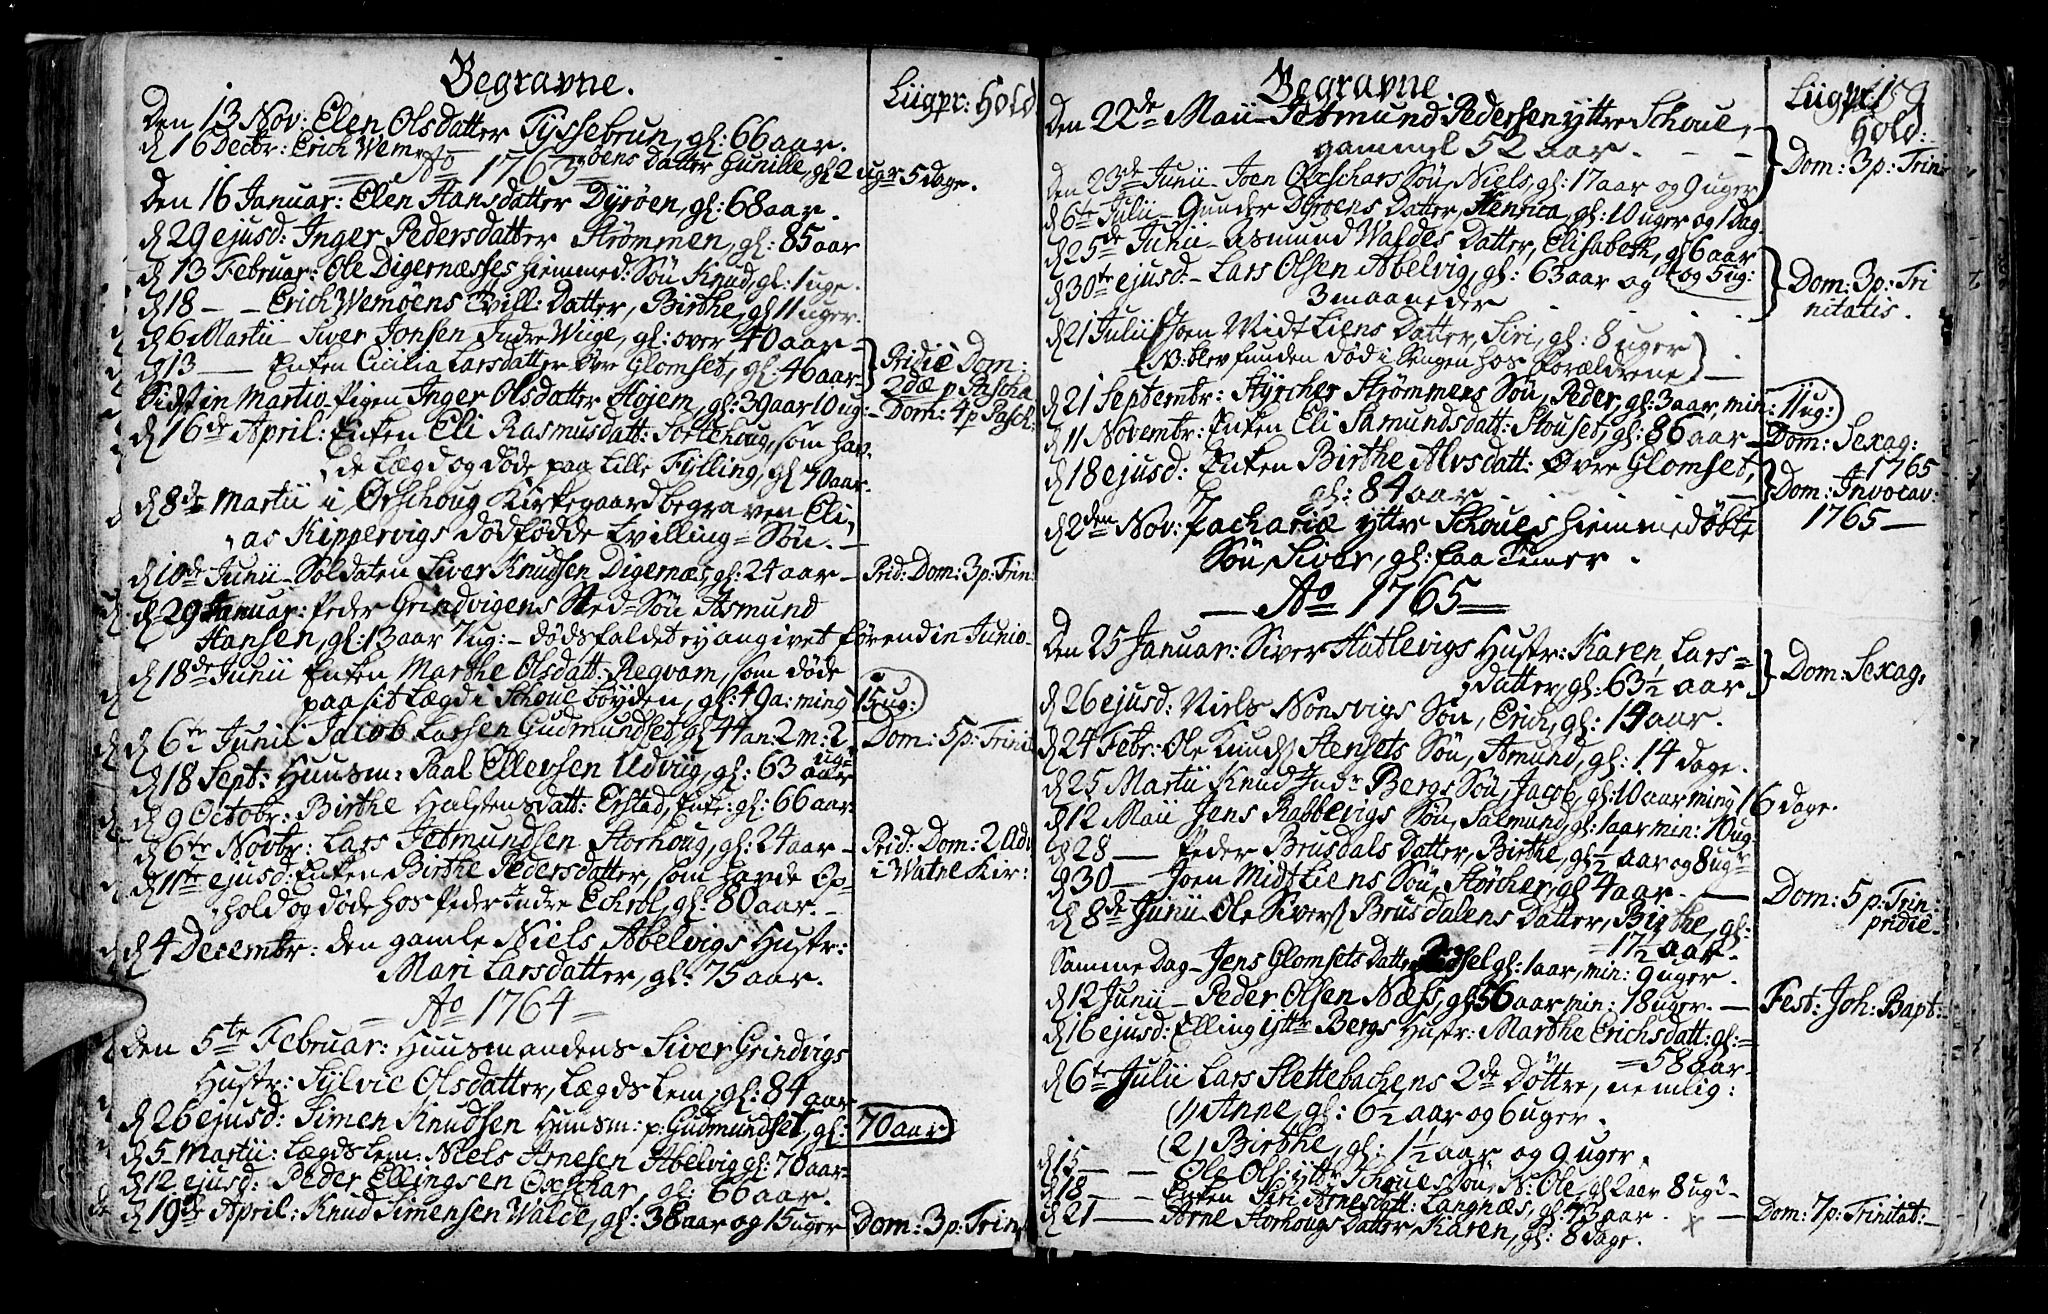 Begravne.
Liigpr: Hold
Den 13 Nov: Elen Olsdatter Tyssebrun, gl: 66 aar.
d 16 Decbr: Erich Wemøens Datter Gunille, gl 2 ugr 5 dage.
Ao 1763
Den 16 Januar: Elen Hansdatter Dyrøen, gl: 68 aar.
d 29 ejusd: Inger Pedersdatter Strømmen, gl: 85 aar
d 13 Februar: Ole Digernæsses hiemmed: Søn Knud, gl: 1 uge.
d 18 - - Erich Wemøens Tvill: Datter, Birthe, gl 11 uger.
d 6 Martii Siver Jonsen Indre Wiige, gl: over 40 aar
d 13 — Enken Cicilia Larsdatter Glomset, gl: 46 aar
Pridie Dom:
2dæ p Pascha
Sidst in Martio Pigen Inger Olsdatter Højem, gl: 39 aar 10 ug: Dom: 4 p Pasch:
d 16de April: Enken Eli Rasmusdatt: Sortehoug, som hav-
de Lægd og døde paa Lille Fylling, gl 70 aar.
d 8de Martii i Ørschoug Kirkegaard begraven Eli-
as Kippervigs dødfødde Tvilling-Søn.
d 10de Junii Soldaten Siver Knudsen Digernæs, gl: 24 aar — Prid: Dom: 3 p: Trin:
d 29 Januar: Peder Grindvigens Sted-Søn Asmund
Hansen, gl: 13 aar 7 ug: - Dødsfaldet ey angivet førend in Junio
d 18de Junii Enken Marthe Olsdatt: Regvam, som døde
paa sit Lægd i Schoue bøyden, gl: 49 a: ming 15 ug:
d 6te Junii Jacob Lassen Gudmundset, gl 44 an: 2 m: 2 ug- Dom: 5 p: Trinit
d 18 Sept: Huusm: Paal Ellevsen Udvig, gl: 63 aar
d 9 Octobr: Birthe Halstensdatt: Erstad, Enke: gl: 66 aar:
d 6te Novbr: Lars Jetmundsen Storhoug, gl: 24 aar — Prid: Dom: 2 Adv
i Watne Kir:
d 11te ejusd: Enken Birthe Pedersdatter, som havde Op-
hold og døde hos Peder Indre Eckrol, gl: 80 aar.
d 4 Decembr: den gamle Niels Abelvigs Hustr:
Mari Larsdatter, gl: 75 aar.
Ao 1764
Den 5te Februar: Huusmandens Siver Grindvigs
Hustr: Sylvie Olsdatter, Lægds Lem, gl: 84 aar
d 26 ejusd: Simen Knudsen Huusm: p: Gudmundset, gl: 70 aar
d 5 Martii: Lægds Lem: Niels Arnesen Abelvig gl: 70 aar
d 12 ejusd: Peder Ellingsen Oxschar, gl: 66 aar.
d 19de April: Knud Simensen Walde, gl: 38 aar og 15 uger Dom: 3 p: Trin
Begravne.
Liigpr: 159
Hold:
Den 22de Maii Jetmund Pedersen yttre Schoue,
gammel 52 aar. - -
Dom: 3 p: Trin
Den 23de Junii - Joen Oxschars Søn, Niels, gl: 17 aar og 9 uger
d 6te Julii - Gunder Dyrøens Datter, Henrica, gl: 10 uger og 1 dag.
d 25de Junii - Asmund Waldes Datter, Elisabeth, gl 6 aar
og 5 ug:
d 30te ejusd - Lars Olsen Abelvig, gl: 63 aar og
3 maaneder
Dom: 3 p: Tri
nitatis.
d 21 Julii Joen Midtliens Datter, Siri, gl: 8 uger
NB: blev funden død i Sengen hos Forældrene
d 21 Septembr: Styrcher Strømmens Søn, Peder, gl: 3 aar, min: 11 ug:
d 11 Novembr: Enken Eli Samundsdatt: Stouset, gl: 86 aar — Dom: Sexag:
1765
d 18 ejusd: Enken Birthe Alvsdatt: Øvre Glomset,
gl: 84 aar
Dom: Invocav:
1765 —
d 2den Nov: Zachariæ yttre Schoues hiemmedøbte
Søn, Siver, gl: faa Timer.
Ao 1765
Den 25 Januar: Siver Hatlevigs Hustr: Karen Lars-
datter, gl: 63 ½ aar
Dom: Sexag:
d 26 ejusd: Niels Nønsvigs Søn, Erich, gl: 14 aar.
d 24 Febr: Ole Knuds Stensets Søn, Amund, gl: 14 dage.
d 25 Martii Knud Indr Bergs Søn, Jacob, gl: 10 aar ming 16 dage.
d 12 Maii Jens Rabbevigs Søn, Salmund, gl: 1 aar min: 10 ug
d 28 — Peder Brusdals Datter, Birthe, gl ½ aar og 8 ugr
d 30 — Joen Midtliens Søn, Störcher, gl 4 aar. —
d 8de Junii Ole Sivers Brusdalens Datter, Birthe, gl:
17 ½ aar.
Dom: 5 p: Trin:
pridie.
Samme Dag - Jens Glomsets Datter, gl: 1 aar, min: 9 uger.
d 12 Junii - Peder Olsen Næss, gl 56 aar min: 18 uger. — Fest: Joh: Bapt:
d 16 ejusd: Elling ittr Bergs Hustr: Marthe Erichsdatt: gl:
58 aar
d 6te Julii Lars Slettebachens 2de Døttre, nemlig:
(1) Anne, gl: 6 ½ aar og 6 uger.
(2) Birthe, gl: 1 ½ aar og 9 uger.
d 15 — — Ole Ols: yttr Schoues Søn, N: Ole, gl 2 aar 8 ugr
d 18 — — Enken Siri Arnesdatt: Langnæs, gl: 73 aar.
d 21 — Arne Storhougs Datter, Karen, gl: 8 dage. x — Dom: 7 p: Trinitat: